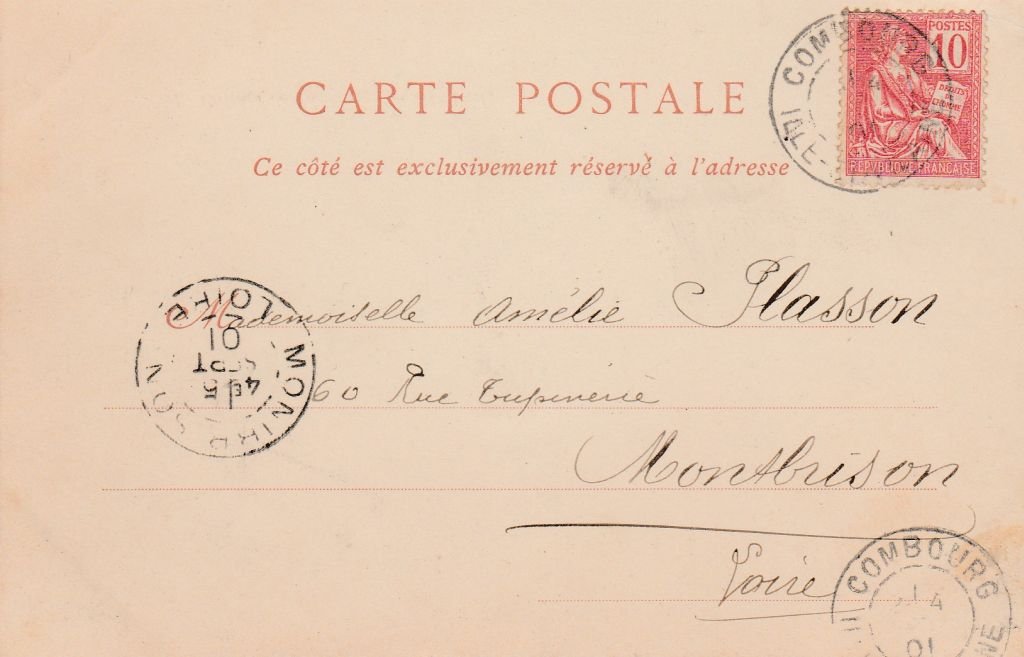 CARTE POSTALE
Ce côté est exclusivement réservé à l'adresse
POSTES
10
DROITS
DE
L'HOMME
REPVBLIQVE FRANÇAISE
COMBOURG
ILLE-
Mademoiselle Amélie Plasson
60 Rue Tupinerie
Montbrison
Loire
MONTBRISON
LOIRE
4E
5
SEPT
01
COMBOURG
4
01